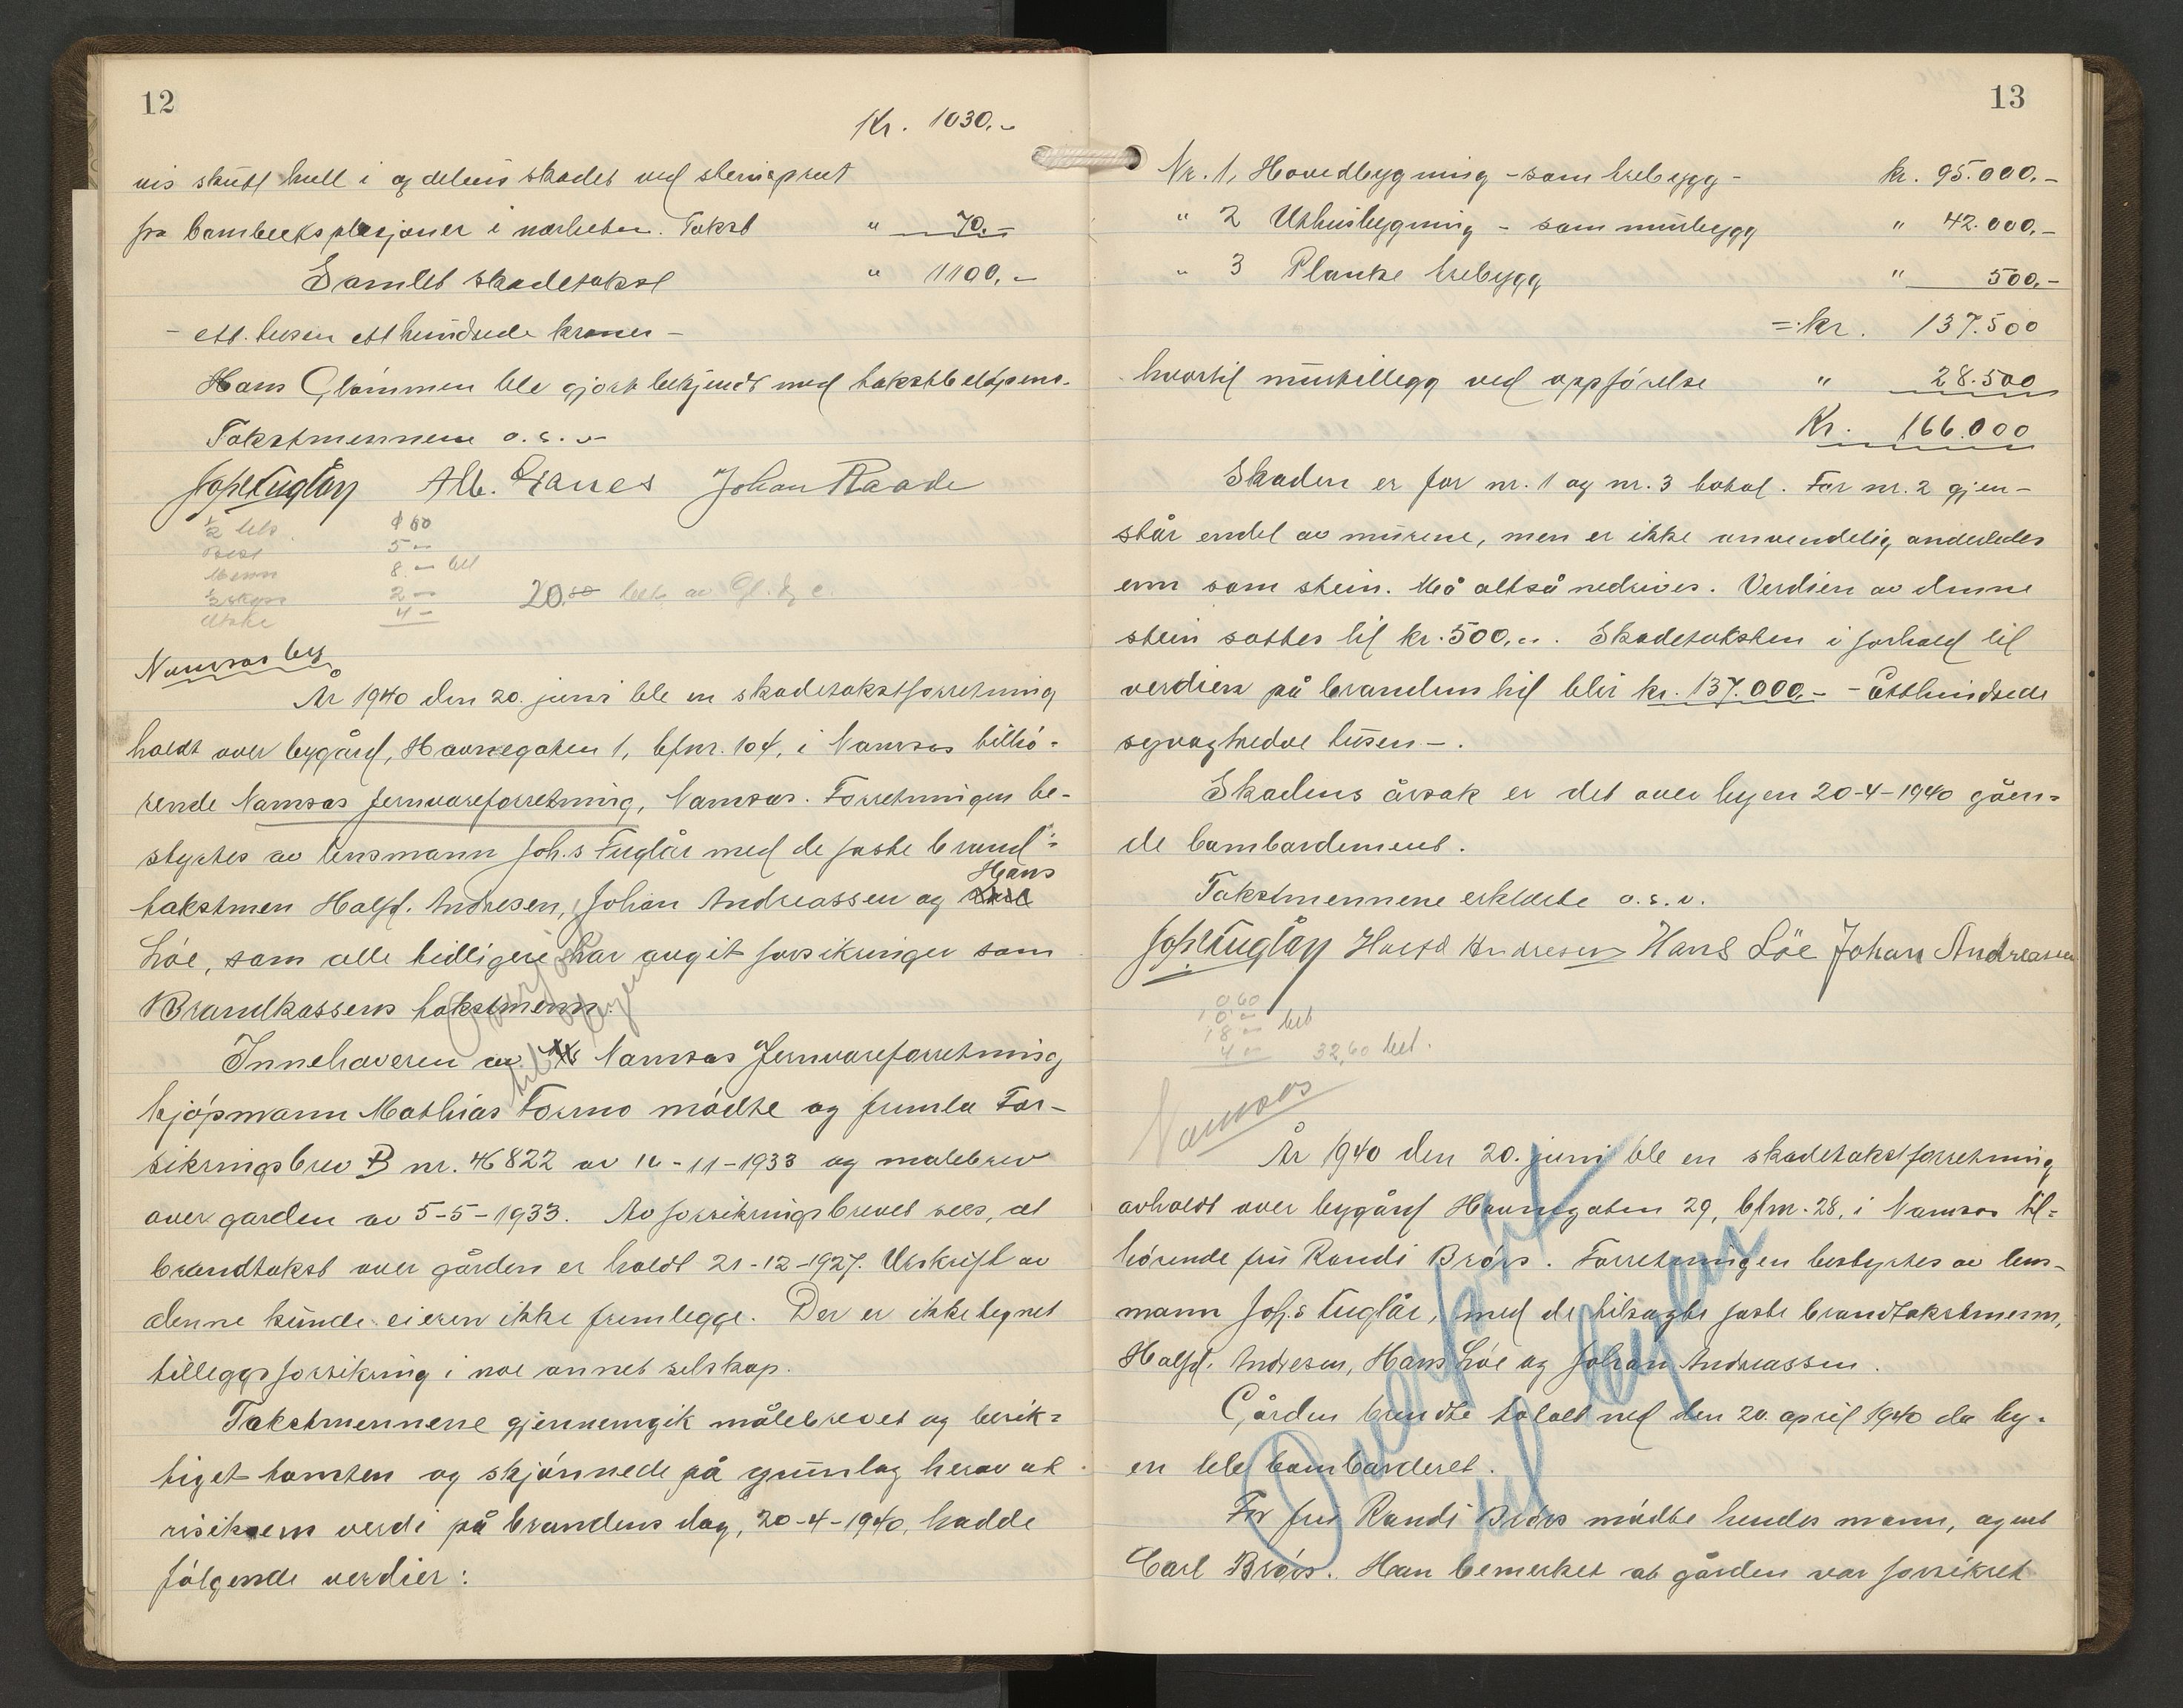 12
Kr. 1030.-
vis skutt hull i og delvis skadet ved steinsprut
fra bombeeksplosjoner i nærheten. Takst " 70.-
Samlet skadetakst " 1100.-
- ett tusen etthundrede kroner -
Hans Glømmen ble gjort bekjendt med takstbeløpene.
Takstmennene o.s.v.
Johs Fuglår Alb. Granes Johan Raade
½ bets. 1 60
5 -
Menn 8.- bet
2 -
4 -
20.60 bet. av
Namsos by
År 1940 den 20. juni ble en skadetakstforretning
holdt over bygård, Havnegaten 1, bfnr. 104, i Namsos tilhø-
rende Namsos Jernvareforretning, Namsos. Forretningen be-
styrtes av lensmann Joh.s Fuglår med de faste brand-
takstmen Halfd. Andresen, Johan Andreassen og Hans
Løe, som alle tidligere har avgit forsikringer som
Brandkassens takstmenn.
Innehaveren av Namsos Jernvareforretning
kjøpmann Mathias Formo mødte og fremla For-
sikringsbrev B nr. 46822 av 10-11-1933 og målebrev
over garden av 5-5-1933. Av forsikringsbrevet sees, at
brandtakst over gården er holdt 21-12-1927. Utskrift av
denne kunde eieren ikke fremlegge. Der er ikke tegnet
tilleggsforsikring i noe annet selskap.
Takstmennene gjennemgik målebrevet og besik-
tiget tomten og skjønnede på grunlag herav at
risikoens verdi på brandens dag, 20-4-1940, hadde
følgende verdier:
13
Nr. 1, Hovedbygning - som trebygg - kr. 95.000.-
" 2 Uthusbygning - som murbygg " 42.000.-
" 3 Planke trebygg " 500.-
=: kr. 137.500
hvortil murtillegg ved oppførelse " 28.500
Kr. 166.000
Skaden er for nr. 1 og nr. 3 total. For nr. 2 gjen-
står endel av murene, men er ikke anvendelig anderledes
enn som stein. Må altså nedrives. Verdien av denne
stein settes til kr. 500.-. Skadetaksten i forhold til
verdien på brandens tid blir kr. 137.000.- - Etthundrede
syvogtredve tusen -.
Skadens årsak er det over byen 20-4-1940 gåen-
de bombardement.
Takstmennene erklærte o.s.v.
Johs Fuglår Halfd Andresen Hans Löe Johan Andreassen
0,60
10.-
18 - bet
4 - 32,60 bet.
Namsos
År 1940 den 20. juni ble en skadetakstforretning
avholdt over bygård Havnegaten 29, bfnr. 28, i Namsos til-
hørende fru Randi Brørs. Forretningen bestyrtes av lens-
mann Joh.s Fuglår, med de tilsagte faste brandtakstmenn,
Halfd. Andresen, Hans Løe og Johan Andreassen.
Gården brendte totalt ned den 20. april 1940 da by-
en ble bombarderet.
For fru Randi Brørs mødte hendes mann, agent
Carl Brørs. Han bemerket at gården var forsikret